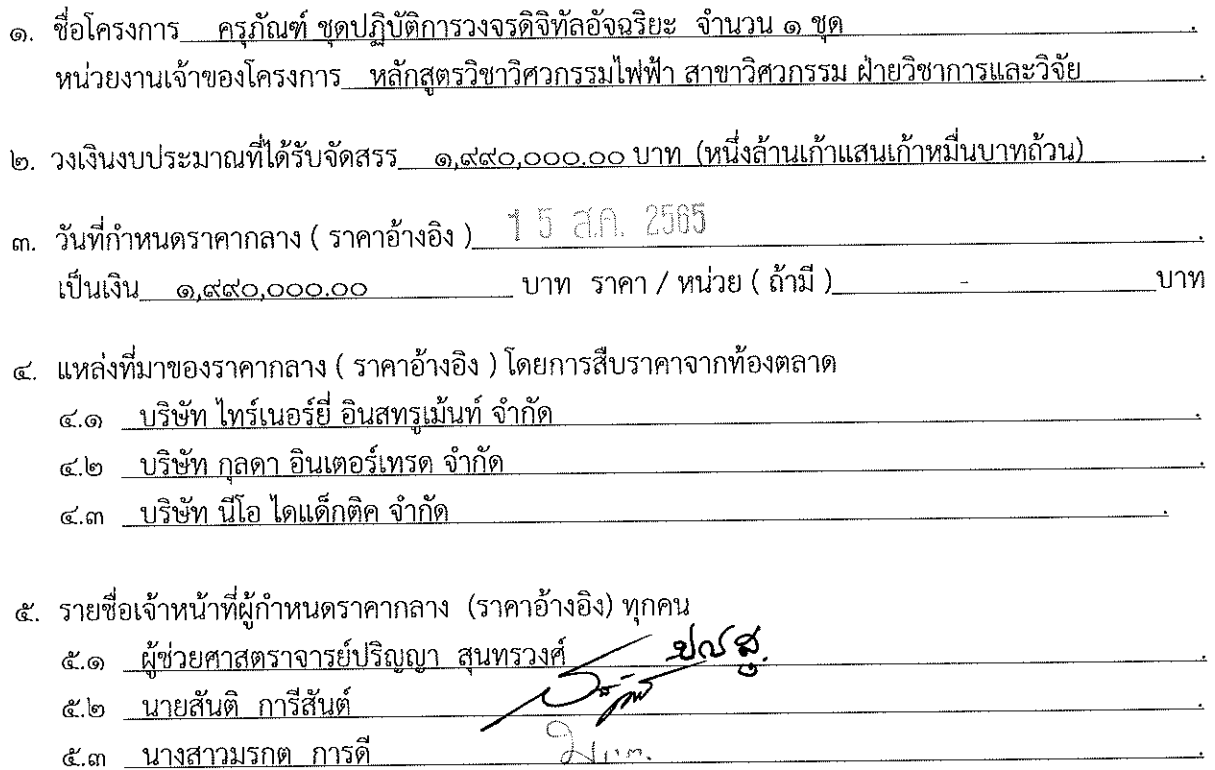 ๑. ชื่อโครงการ ครุภัณฑ์ ชุดปฏิบัติการวงจรดิจิทัลอัจฉริยะ จำนวน ๑ ชุด .
หน่วยงานเจ้าของโครงการ หลักสูตรวิชาวิศวกรรมไฟฟ้า สาขาวิศวกรรม ฝ่ายวิชาการและวิจัย .
๒. วงเงินงบประมาณที่ได้รับจัดสรร ๑,๙๙๐,๐๐๐.๐๐ บาท (หนึ่งล้านเก้าแสนเก้าหมื่นบาทถ้วน) .
๓. วันที่กำหนดราคากลาง ( ราคาอ้างอิง ) 15 ส.ค. 2565 .
เป็นเงิน ๑,๙๙๐,๐๐๐.๐๐ บาท ราคา / หน่วย ( ถ้ามี ) - บาท
๔. แหล่งที่มาของราคากลาง ( ราคาอ้างอิง ) โดยการสืบราคาจากท้องตลาด
๔.๑ บริษัท ไทร์เนอร์ยี่ อินสทรูเม้นท์ จำกัด .
๔.๒ บริษัท กุลดา อินเตอร์เทรด จำกัด .
๔.๓ บริษัท นีโอ ไดแด็กติค จำกัด .
๕. รายชื่อเจ้าหน้าที่ผู้กำหนดราคากลาง (ราคาอ้างอิง) ทุกคน
๕.๑ ผู้ช่วยศาสตราจารย์ปริญญา สุนทรวงศ์ .
๕.๒ นายสันติ การีสันต์ .
๕.๓ นางสาวมรกต การดี .